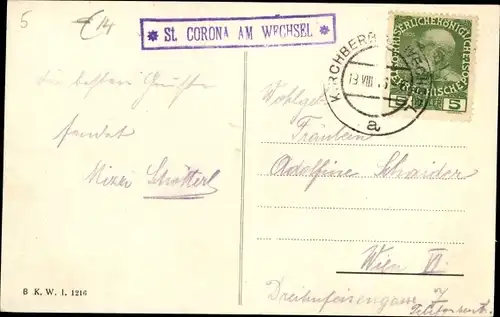 5
€ 14
* St. CORONA AM WECHSEL *
KIRCHBERG
WECHSEL
13 VIII
a
KAISERLICHE KÖNIGLICHE
ÖSTERREICHISCHE POST
5 HELLER 5
Die besten Grüße
sendet
Mizzi
Wohlgeb
Fräulein
Adolfine Schaider
Wien VI
Dreihufeisengasse 7
B. K. W. I. 1216